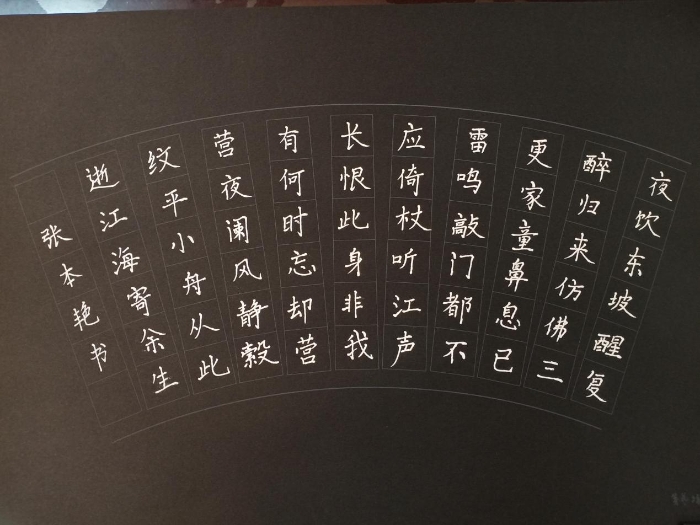 夜饮东坡醒复
醉归来仿佛三
更家童鼻息已
雷鸣敲门都不
应倚杖听江声
长恨此身非我
有何时忘却营
营夜阑风静縠
纹平小舟从此
逝江海寄余生
张本艳书